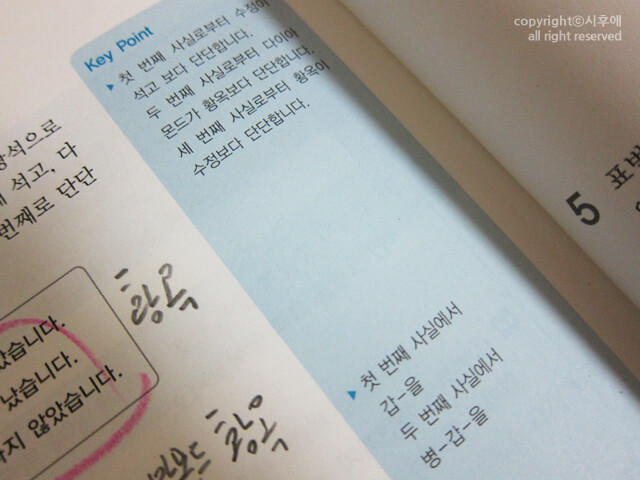 copyrightⓒ시후애
all right reserved
Key Point
첫 번째 사실로부터 수정이
석고 보다 단단합니다.
두 번째 사실로부터 다이아
몬드가 황옥보다 단단합니다.
세 번째 사실로부터 황옥이
수정보다 단단합니다.
광석으로
석고, 다
번째로 단단
황옥
았습니다.
났습니다.
지 않았습니다.
황옥
첫 번째 사실에서
갑-을
두 번째 사실에서
병-갑-을
5